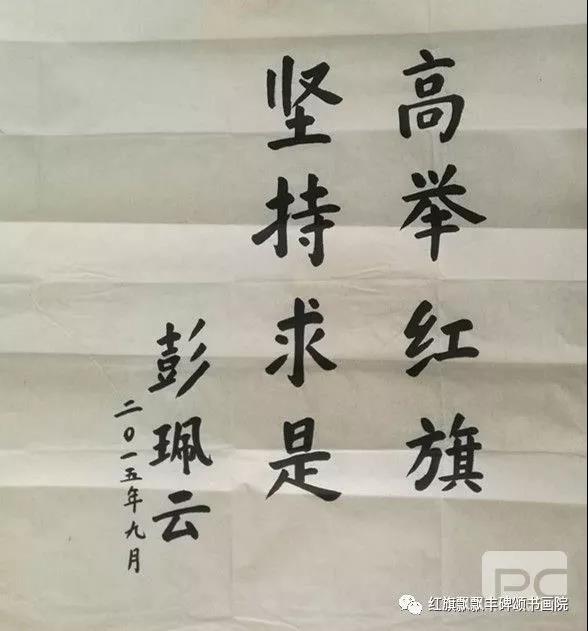 高举红旗
坚持求是
彭珮云
二〇一五年九月
PC
红旗飘飘丰碑颂书画院